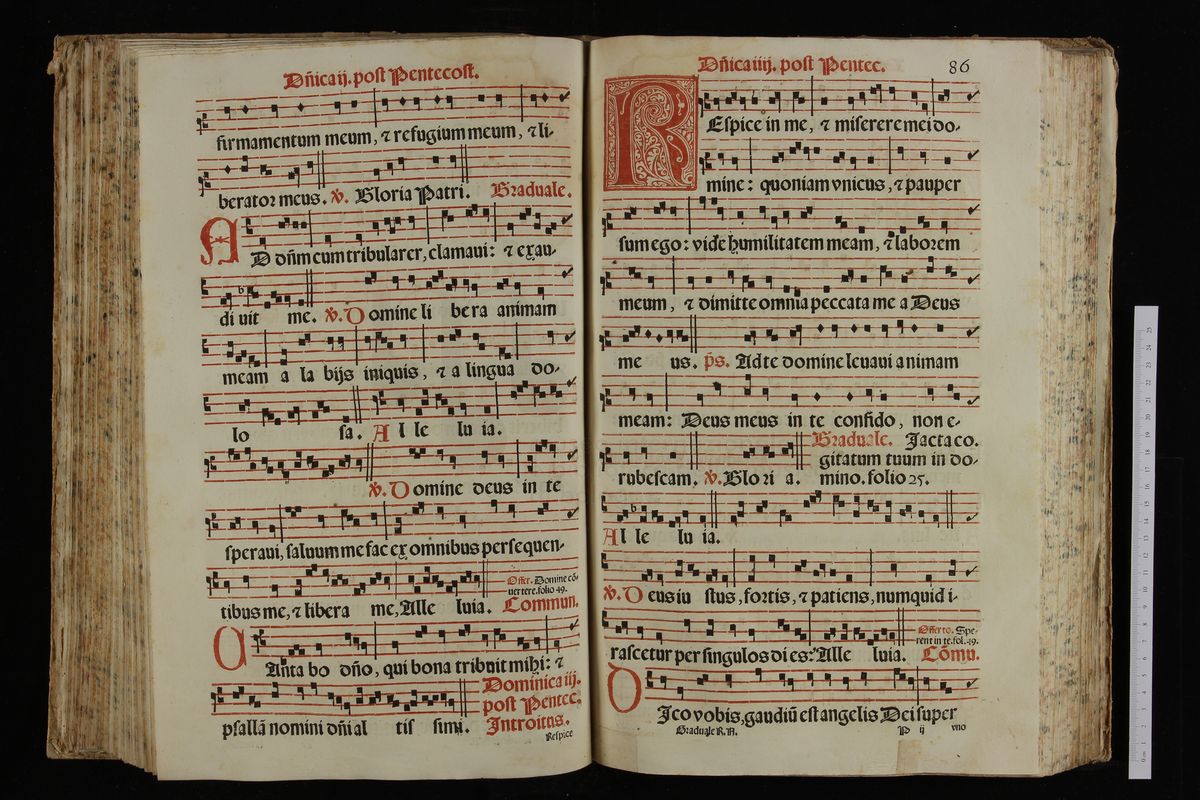 Dñica ij. post Pentecost.
firmamentum meum, ⁊ refugium meum, ⁊ li-
berator meus. ℣. Gloria Patri. Graduale.
AD dñm cum tribularer, clamaui: ⁊ exau-
di uit me. ℣. Domine li bera animam
meam a la bijs iniquis, ⁊ a lingua do-
lo sa. Al le lu ia.
℣. Domine deus in te
speraui, saluum me fac ex omnibus persequen-
tibus me, ⁊ libera me, Alle luia. Offer. Domine cõ-
uertere. folio 49. Commun.
CAnta bo dño, qui bona tribuit mihi: ⁊
psallã nomini dñi al tis simi. Dominica iij.
post Pentec.
Introitus.
Respice
Dñica iiij. post Pentec. 86
REspice in me, ⁊ miserere mei do-
mine: quoniam vnicus, ⁊ pauper
sum ego: vide humilitatem meam, ⁊ laborem
meum, ⁊ dimitte omnia peccata me a Deus
me us. p̃s. Ad te domine leuaui animam
meam: Deus meus in te confido, non e-
rubescam. ℣. Glo ri a. Graduale. Jacta co.
gitatum tuum in do-
mino. folio 25.
Al le lu ia.
℣. Deus iu stus, fortis, ⁊ patiens, numquid i-
rascetur per singulos di es: Alle luia. Offerto. Spe-
rent in te. fol. 49. Cõmu.
DIco vobis, gaudiũ est angelis Dei super
Graduale R.A. P ij vno